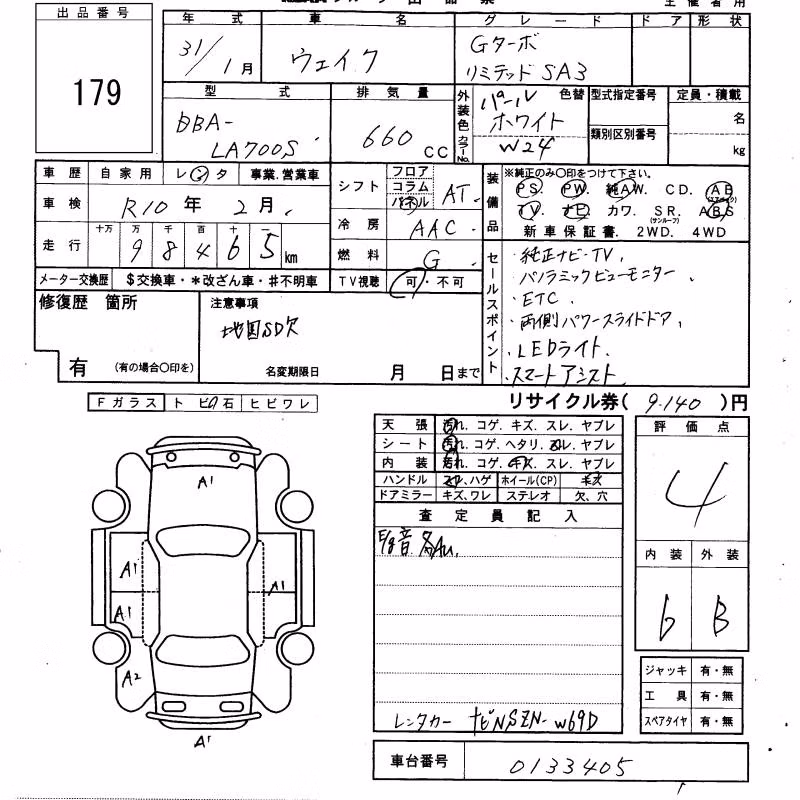 出品番号
179
年式 車名 グレード ドア 形状
31/1月 ウェイク Gターボ
リミテッド SA3
型式 排気量 外装色 カラーNo. 色替 型式指定番号 定員・積載
DBA-
LA700S
660 CC
パール
ホワイト
W24
類別区別番号
名
kg
車歴 自家用 レンタ 事業.営業車
車検 R10年 2月
走行 十万 万 千 百 十
98465 km
メーター交換歴 $交換車・*改ざん車・#不明車
シフト フロア コラム パネル AT
冷房 AAC
燃料 G
TV視聴 可・不可
装備品
※純正のみ〇印をつけて下さい。
PS. PW. 純AW. CD. AB (エアバック)
TV. ナビ. カワ. SR. (サンルーフ) ABS
新車保証書. 2WD. 4WD
セールスポイント
・純正ナビ・TV、
・パノラミックビューモニター、
・ETC、
・両側パワースライドドア、
・LEDライト、
・スマートアシスト、
修復歴 箇所
有 (有の場合〇印を)
注意事項
地図SD欠
名変期限日 月 日まで
リサイクル券( 9.140 )円
Fガラス トビ石 ヒビワレ
天張 汚れ. コゲ. キズ. スレ. ヤブレ
シート 汚れ. コゲ. ヘタリ. スレ. ヤブレ
内装 汚れ. コゲ. キズ. スレ. ヤブレ
ハンドル スレ、ハゲ ホイール(CP) キズ
ドアミラー キズ、ワレ ステレオ 欠、穴
査定員記入
各AU.
レンタカー ナビNSZN-W69D
評価点
4
内装 外装
6 B
ジャッキ 有・無
工具 有・無
スペアタイヤ 有・無
車台番号 0133405
A1
A1
A1
A1
A2
A1